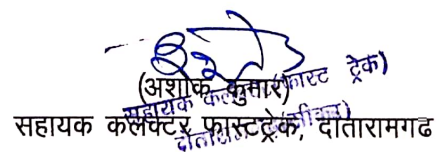 (अशोक कुमार)
सहायक कलेक्टर फास्ट ट्रेक)
सहायक कलेक्टर फास्टट्रेक, दांतारामगढ